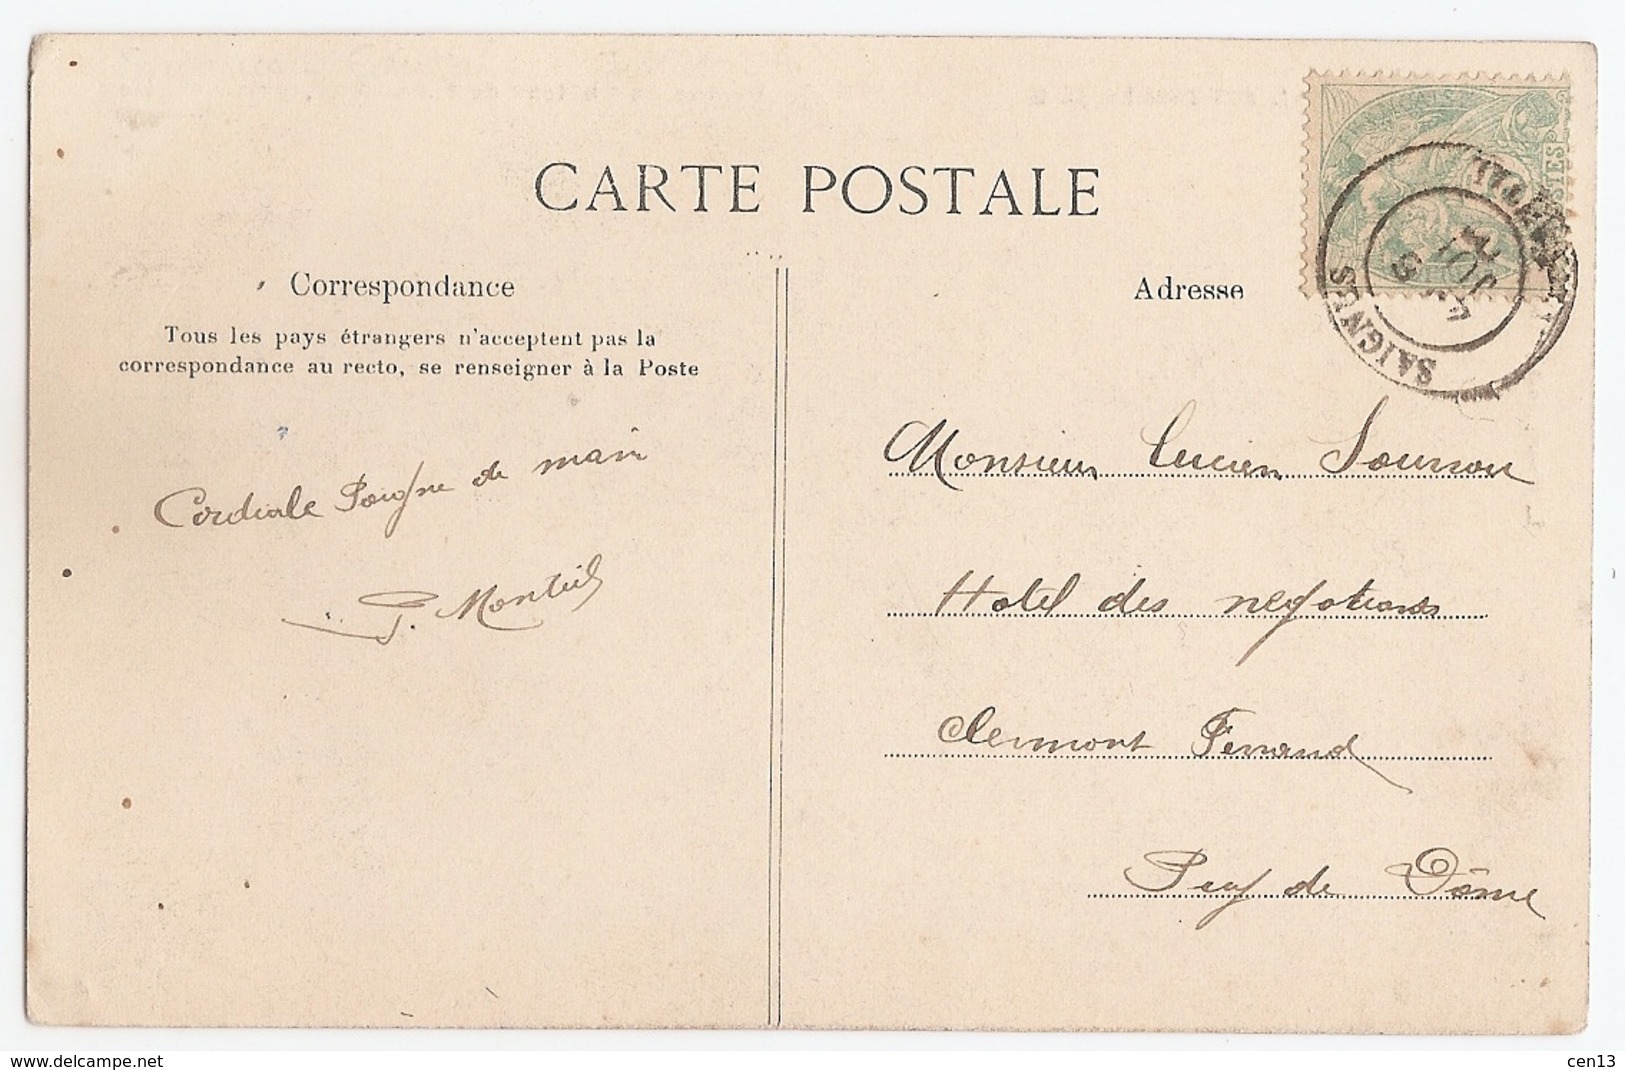 CARTE POSTALE
Correspondance
Tous les pays étrangers n'acceptent pas la
correspondance au recto, se renseigner à la Poste
Cordiale Poigne de main
Monteil
Adresse
SAIGNES
Monsieur Lucien
Hotel des negotiants
Clermont Ferrand
Puy de Dôme
delcampe.net
cen13